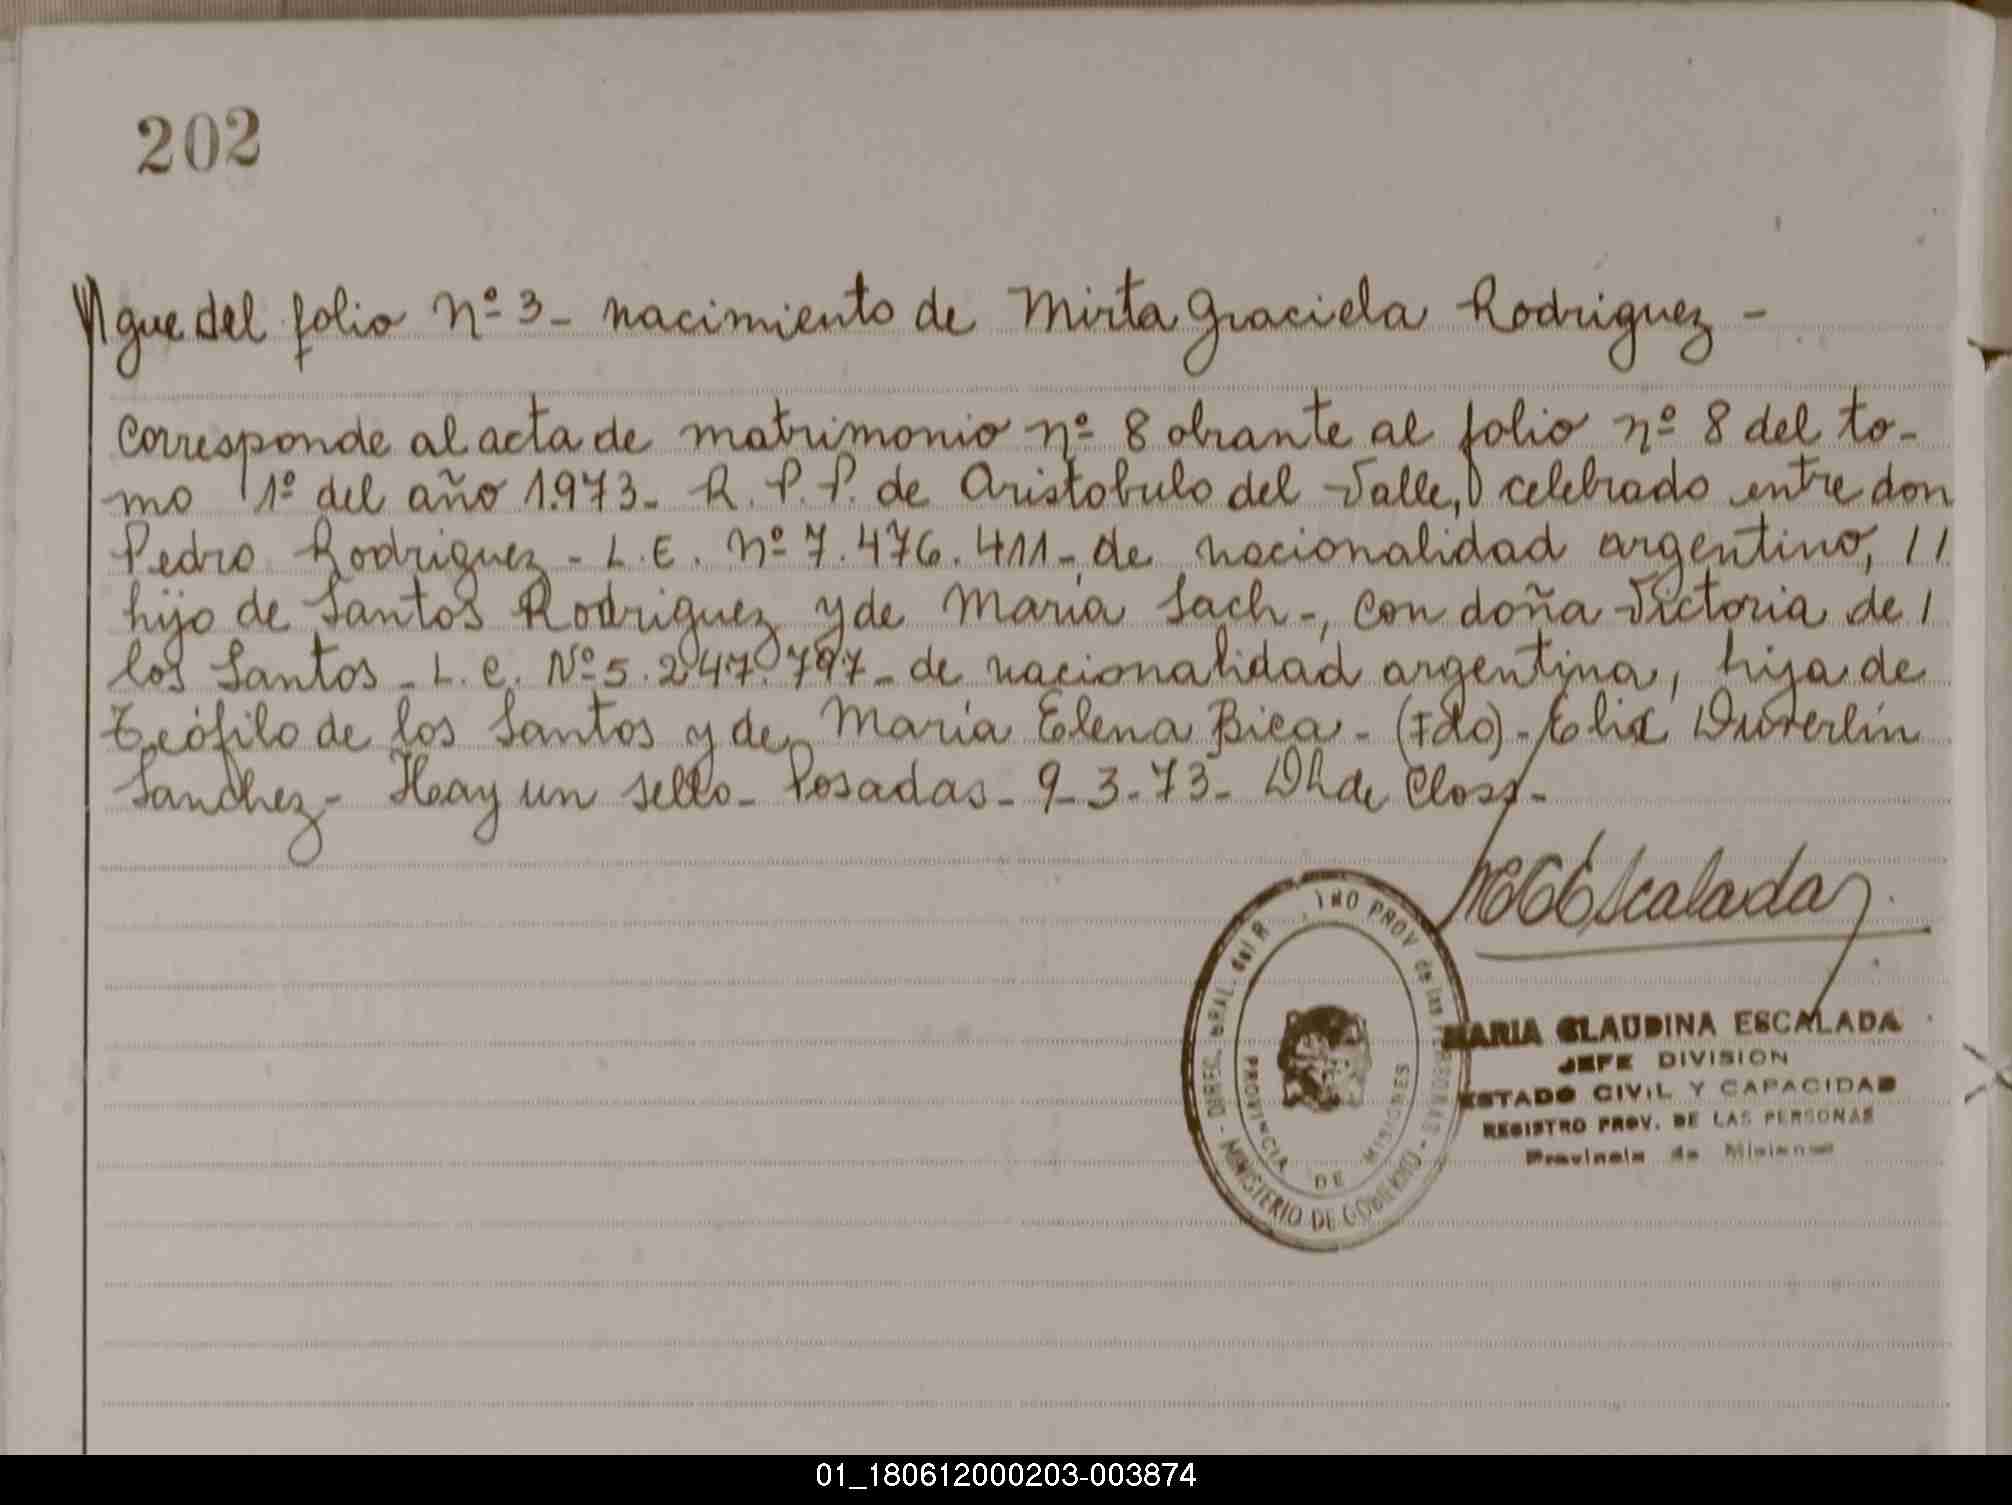 202
Sigue del folio Nº 3 - nacimiento de Mirta Graciela Rodriguez -
Corresponde al acta de matrimonio nº 8 obrante al folio nº 8 del to-
mo 1º del año 1.973 - R. P. P. de Aristobulo del Valle, celebrado entre don
Pedro Rodriguez - L. E. Nº 7.476.411 - de nacionalidad argentino, //
hijo de Santos Rodriguez y de María Sach -, con doña Victoria de /
los Santos - L. C. Nº 5.247.797 - de nacionalidad argentina, hija de
Teófilo de los Santos y de María Elena Bica - (Fdo) - Elix
Sanchez - Hay un sello - Posadas - 9-3-73 - de Closs -
MCEscalada
DIREC. GRAL. del R PROV de las PERSONAS - MINISTERIO DE GOBIERNO -
PROVINCIA DE MISIONES
MARIA CLAUDINA ESCALADA
JEFE DIVISION
ESTADO CIVIL Y CAPACIDAD
REGISTRO PROV. DE LAS PERSONAS
Provincia de Misiones
01_180612000203-003874